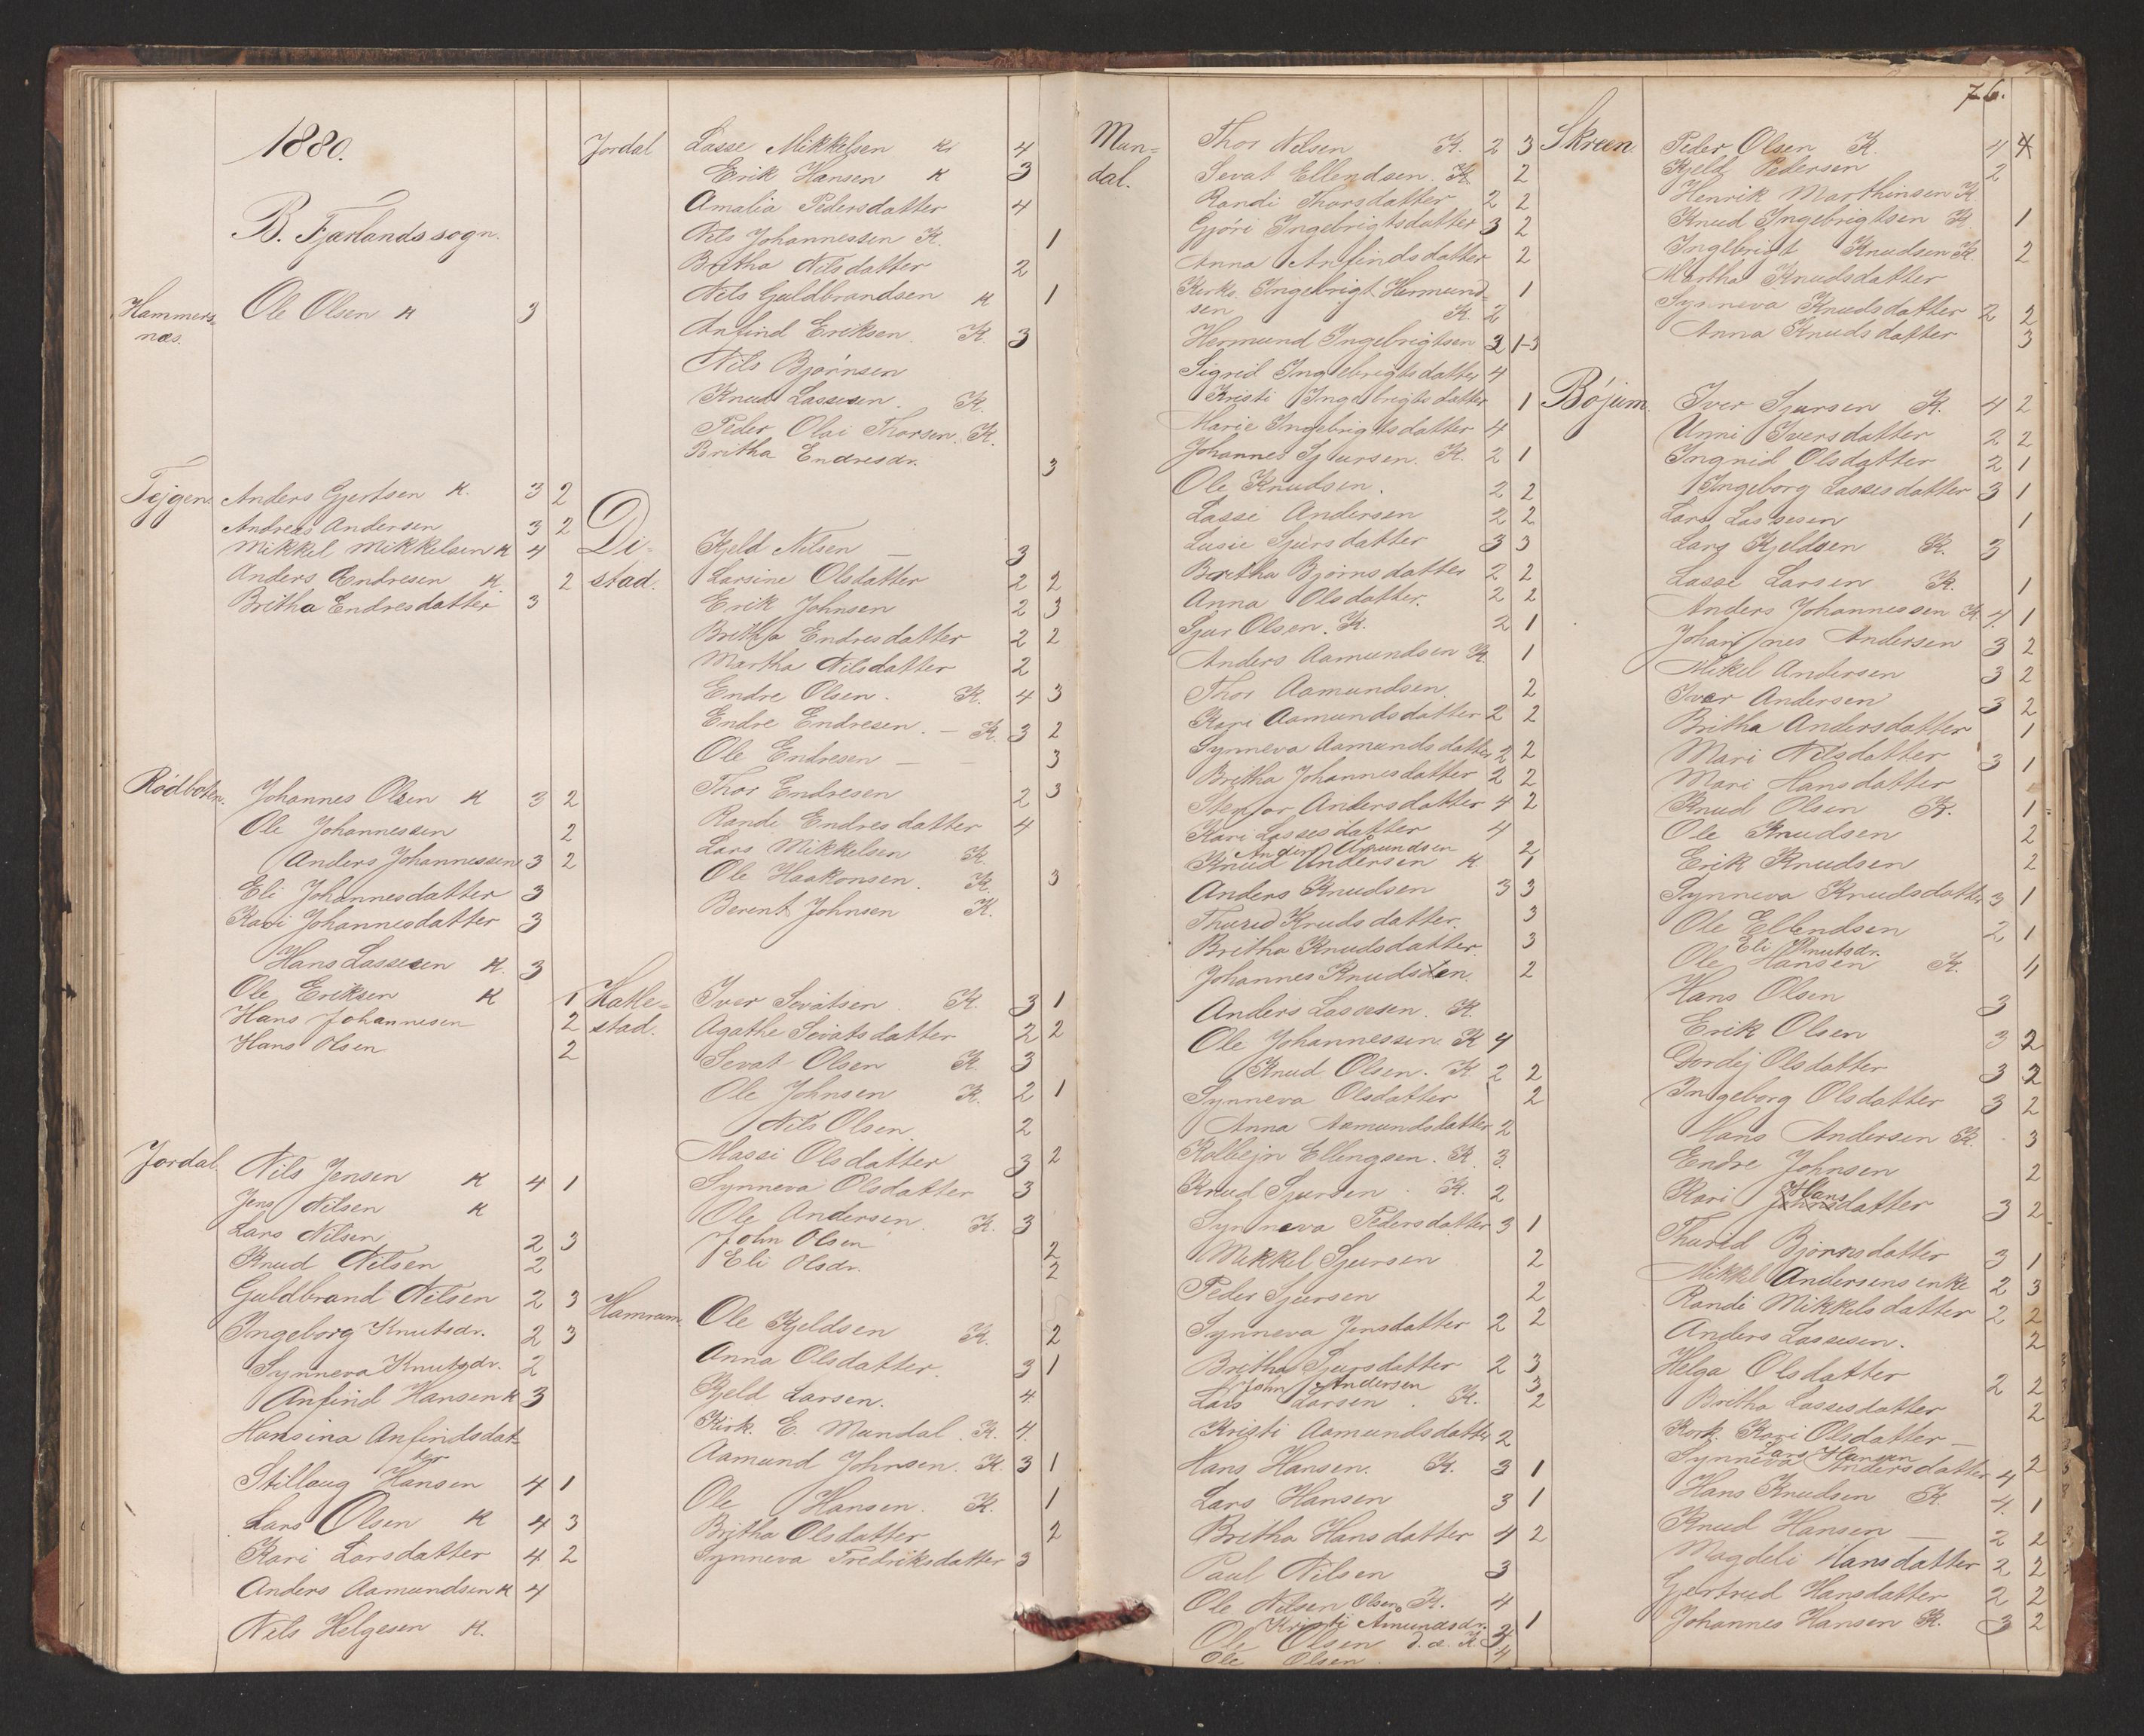 1880.
B. Fjærlands sogn.
Hammers-
næs.
Ole Olsen K 3
Tejgen. Anders Gjertsen K. 3 2
Andreas Andersen 3 2
Mikkel Mikkelsen K 4
Anders Endresen K. 2
Britha Endresdatter 3
Rødboten. Johannes Olsen K 3 2
Ole Johannessen 2
Anders Johannessen 3 2
Eli Johannesdatter 3
Kari Johannesdatter 3
Hans Lassesen K. 3
Ole Eriksen K 1
Hans Johannesen 2
Hans Olsen 2
Jordal Nils Jensen K 4 1
Jens Nilsen K
Lars Nilsen 2 3
Knud Nilsen 2
Guldbrand Nilsen 2 3
Ingeborg Knutsdr. 2 3
Synneva Knutsdr. 2
Anfind Hansen K 3
Hansina Anfindsdat-
ter
Stillaug Hansen 4 1
Lars Olsen K 4 3
Kari Larsdatter 4 2
Anders Aamundsen K 4
Nils Helgesen K.
Jordal Lasse Mikkelsen K 4
Erik Hansen K 3
Amalia Pedersdatter 4
Nils Johannessen K. 1
Britha Nilsdatter 2
Nils Guldbrandsen K 1
Anfind Eriksen. K 3
Nils Bjørnsen
Knud Lassesen. K.
Peder Olai Thorsen. K.
Britha Endresdr. 3
Di-
stad.
Kjeld Nilsen — 3
Larsine Olsdatter 2 2
Erik Johnsen 2 3
Britha Endresdatter 2 2
Martha Nilsdatter 2
Endre Olsen. K. 4 3
Endre Endresen. — K. 3 2
Ole Endresen — — 3
Thor Endresen 2 3
Randi Endresdatter 4
Lars Mikkelsen K.
Ole Haakonsen. K. 3
Berent Johnsen K.
Hatle-
stad.
Iver Sevatsen. K. 3 1
Agathe Sevatsdatter 2 2
Sevat Olsen K. 3
Ole Johnsen K. 2 1
Nils Olsen 2
Massi Olsdatter 3 2
Synneva Olsdatter 3
Ole Andersen. K. 3
John Olsen 2
Eli Olsdr. 2
Hamrum. Ole Kjeldsen K. 2
Anna Olsdatter. 3 1
Kjeld Larsen. 4
Kirk. E. Mundal. K. 4
Aamund Johnsen. K. 3 1
Ole Hansen. K. 1
Britha Olsdatter 2
Synneva Fredriksdatter 3
Mun-
dal.
Thor Nilsen K. 2 3
Sevat Ellendsen. K 2
Randi Thorsdatter 2 2
Gjøri Ingebrigtsdatter 3 2
Anna Anfindsdatter 2
Kirks. Ingebrigt Hermund- 1
sen K. 2
Hermund Ingebrigtsen 3 1-3
Sigrid Ingebrigtsdatter 4
Kristi Ingebrigtsdatter 1
Marie Ingebrigtsdatter 4
Johannes Sjursen. K. 2 1
Ole Knudsen. 2 2
Lasse Andersen 2 2
Lusie Sjursdatter 3 3
Britha Bjørnsdatter 2 2
Anna Olsdatter. 2 2
Sjur Olsen. K. 2 1
Anders Aamundsen K. 1
Thor Aamundsen. 2
Kari Aamundsdatter 2 2
Synneva Aamundsdatter 2 2
Britha Johannesdatter 2 2
Andersdatter 4 2
Kari Lassesdatter 4
Anders Åmundsen 2
Knud Andersen K 1
Anders Knudsen 3 3
Thurid Knudsdatter. 3
Britha Knudsdatter. 3
Johannes Knudsen 2
Anders Lassesen. K.
Ole Johannessen K 4
Knud Olsen. K 2 2
Synneva Olsdatter 2
Anna Aamundsdatter 2
Kolbejn Ellingsen. K. 3.
Knud Sjursen. K. 2
Synneva Pedersdatter 3 1
Mikkel Sjursen 2
Peder Sjursen 2
Synneva Jensdatter 2 2
Britha Sjursdatter 2 3
John Andersen 3
Lars Larsen. K. 2
Kristi Aamundsdatter 2
Hans Hansen. K. 3 1
Lars Hansen 3 1
Britha Hansdatter 4 2
Paul Nilsen 3
Ole Nilsen Olsen K. 4
Kristi Åmundsdr. 1
Ole Olsen d. æ. K 3
Ole Olsen. 4
76.
Skreen. Peder Olsen K. 4 4
Kjeld Pedersen 2
Henrik Marthinsen K.
Knud Ingebrigtsen K 1
Ingebrigt Knudsen K. 2
Martha Knudsdatter
Synneva Knudsdatter 2 2
Anna Knudsdatter 3
Bøjum. Iver Sjursen K. 4 2
Unni Iversdatter 2 2
Ingrid Olsdatter 2 1
Ingeborg Lassesdatter 3 1
Lars Lassesen 1
Lars Kjeldsen K. 3
Lasse Larsen K. 1
Anders Johannessen K 4. 1
Johannes Andersen 3 2
Mikel Andersen 3 2
Ivar Andersen 3 2
Britha Andersdatter 1
Mari Nilsdatter 3 1
Mari Hansdatter
Knud Olsen K. 1
Ole Knudsen 2
Erik Knudsen 2
Synneva Knudsdatter 3 1
Ole Ellendsen 2 1
Eli Knutsdr.
Ole Hansen K. 4
Hans Olsen 3
Erik Olsen 3 2
Dordej Olsdatter 3 2
Ingeborg Olsdatter 3 2
Hans Andersen K. 3
Endre Johnsen 2
Kari Hansdatter 3 2
Thurid Bjørnsdatter 3 1
Mikkel Andersens enke 2 3
Randi Mikkelsdatter 2 2
Anders Lassesen. 2
Helga Olsdatter 2 2
Britha Lassesdatter 2
Kork. Kari Olsdatter —
Lars Hansen 2
Synneva Andersdatter 4
Hans Knudsen K 4. 1
Knud Hansen — 2 2
Magdeli Hansdatter 2 2
Gjertrud Hansdatter 2 2
Johannes Hansen K. 3 2